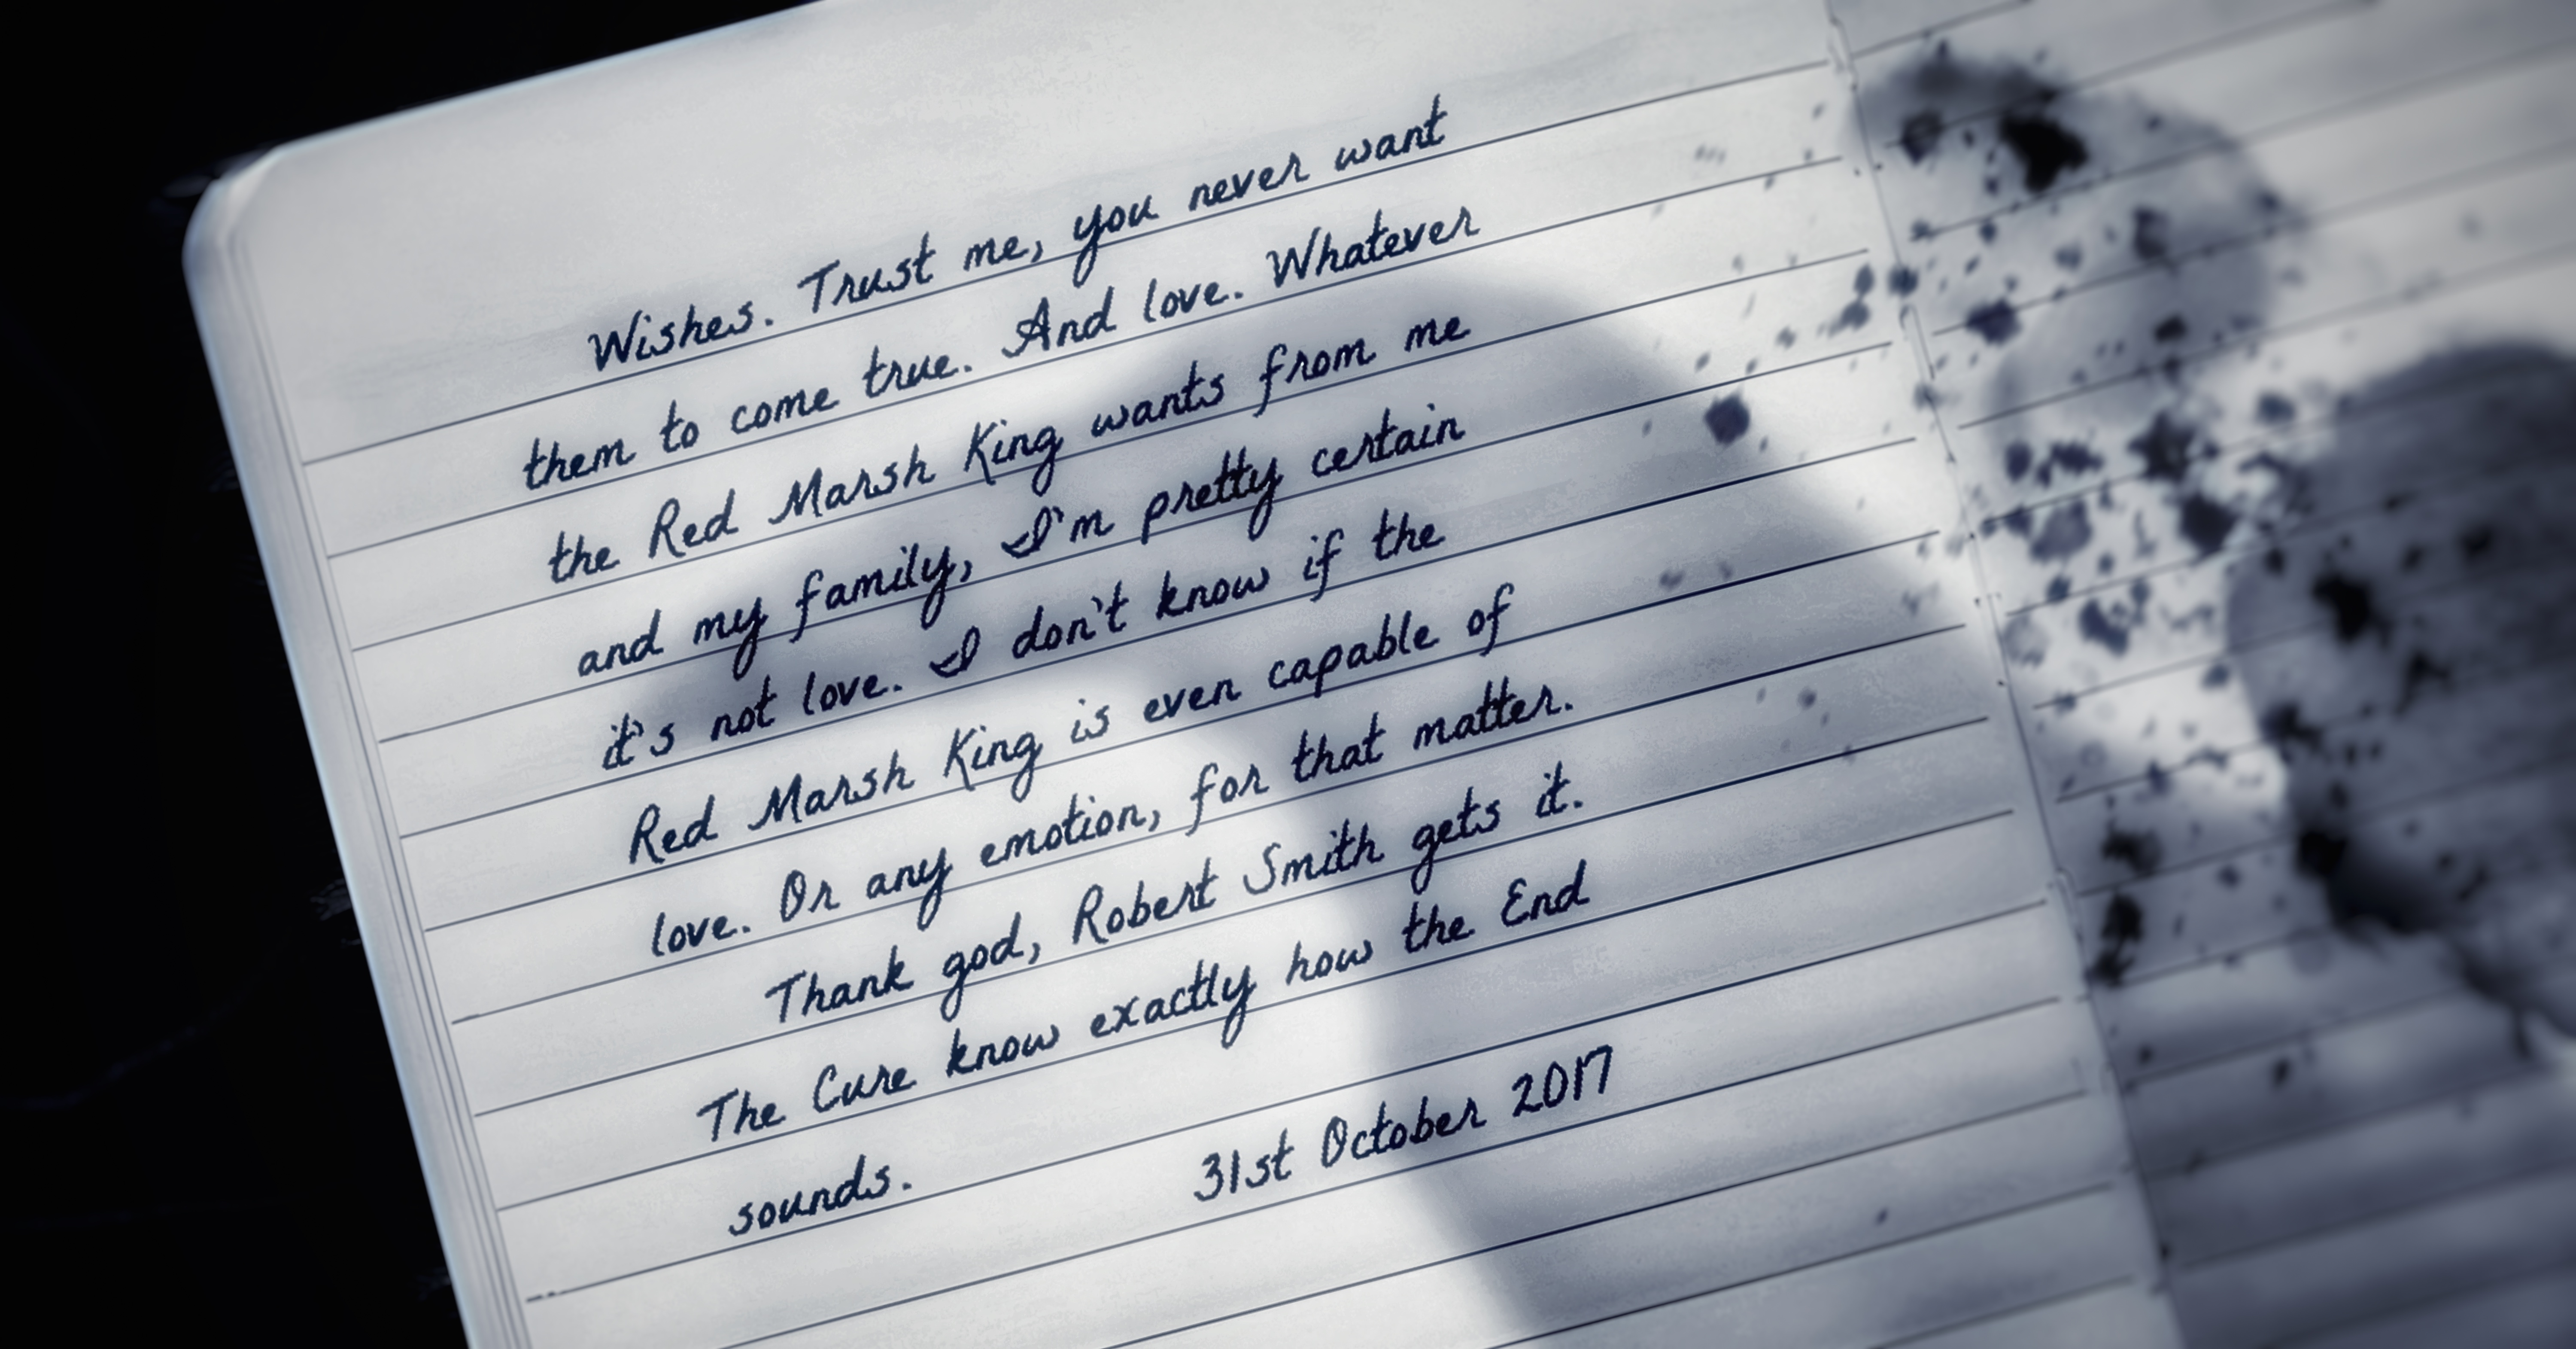 Wishes. Trust me, you never want
them to come true. And love. Whatever
the Red Marsh King wants from me
and my family, I'm pretty certain
it's not love. I don't know if the
Red Marsh King is even capable of
love. Or any emotion, for that matter.
Thank god, Robert Smith gets it.
The Cure know exactly how the End
sounds.
31st October 2017